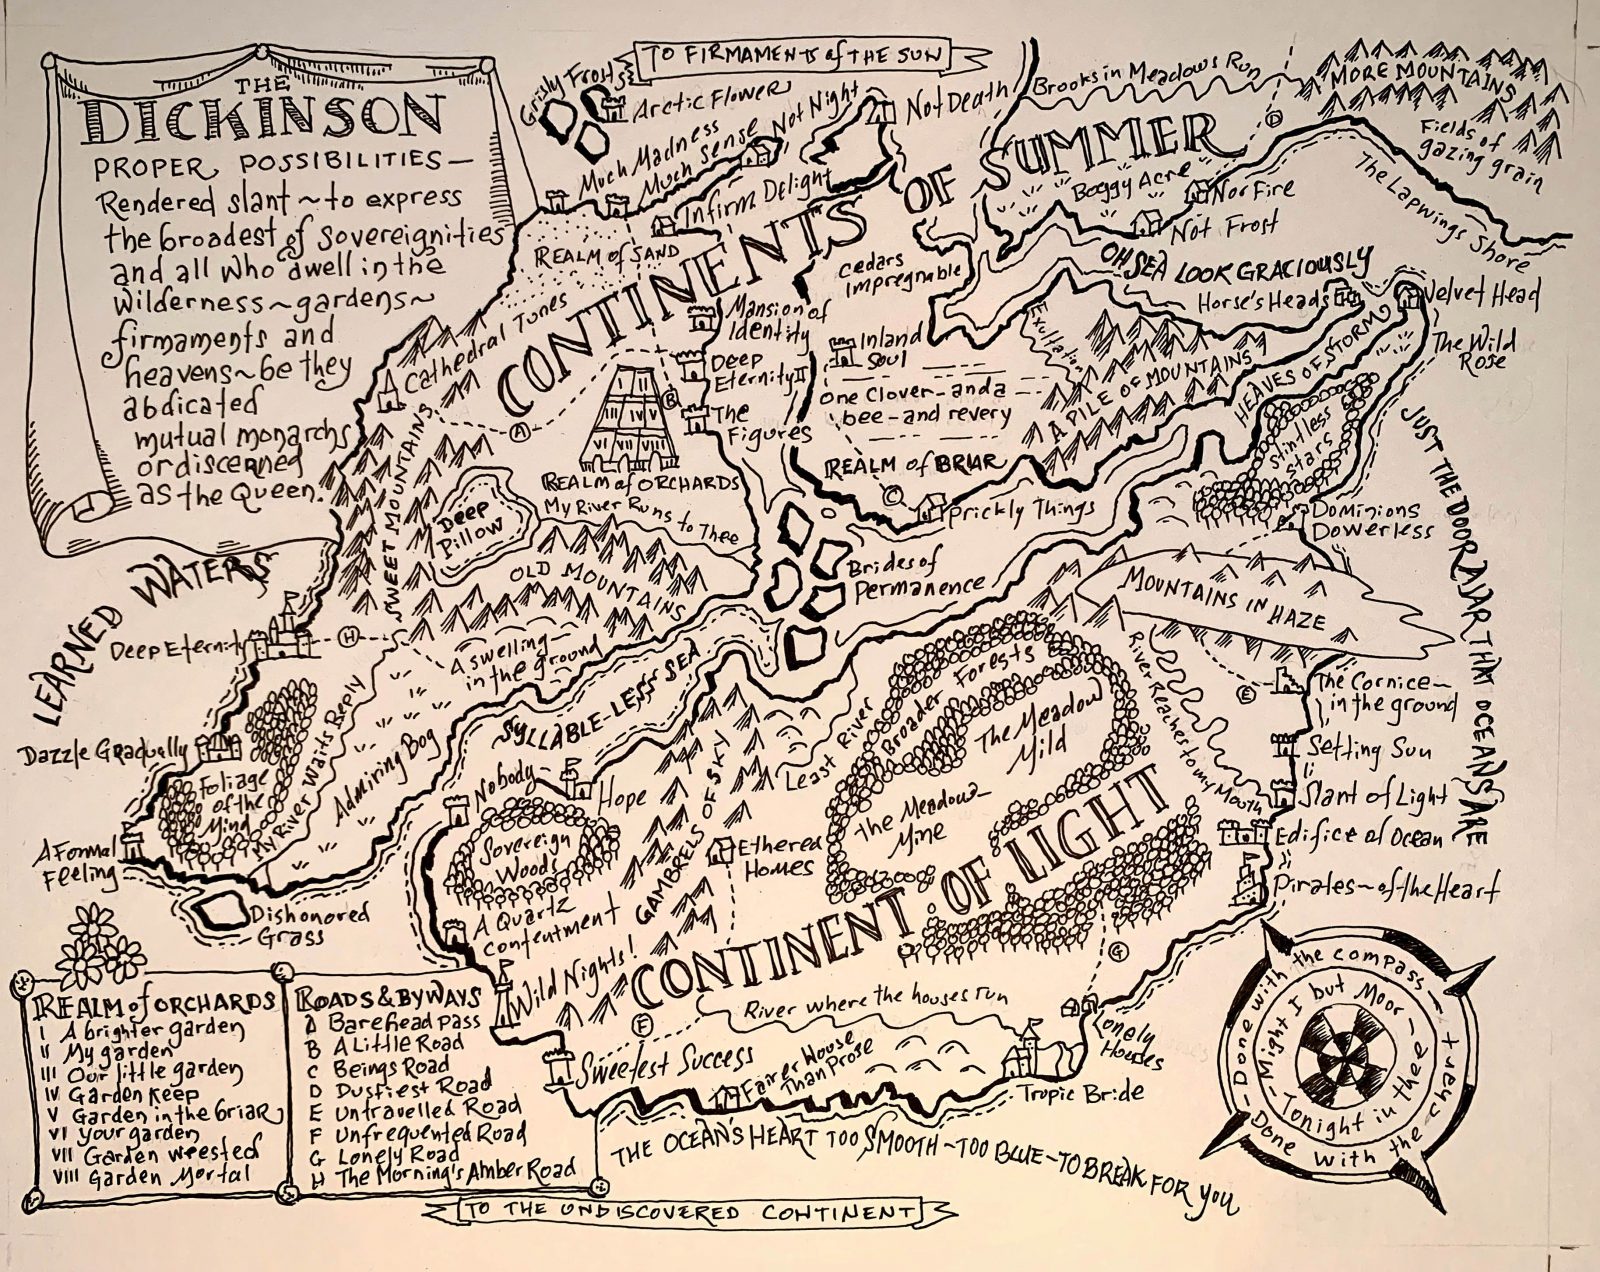 THE
DICKINSON
PROPER POSSIBILITIES—
Rendered slant ~ to express
the broadest of sovereignities
and all who dwell in the
wilderness ~ gardens ~
firmaments and
heavens ~ be they
abdicated
mutual monarchs
or discerned
as the Queen.
TO FIRMAMENTS of THE SUN
Grisly Frosts
Arctic Flower
Much Madness
Much Sense
Not Night
Not Death
Infirm Delight
Brooks in Meadows Run
MORE MOUNTAINS
Fields of
gazing grain
The Lapwings Shore
CONTINENTS OF SUMMER
Boggy Acre
Nor Fire
Not Frost
REALM of SAND
Cedars
Impregnable
OH SEA LOOK GRACIOUSLY
Horse's Heads
Velvet Head
The Wild
Rose
Cathedral Tunes
Mansion of
Identity
Deep
Eternity II
The
Figures
Inland
Soul
Exultation
One Clover—and a
bee—and revery
A PILE OF MOUNTAINS
HEAVES OF STORM
Stintless
Stars
JUST THE DOOR AJAR THAT OCEANS ARE
A
B
I
II
III
IV
V
VI
VII
VIII
REALM of ORCHARDS
REALM of BRIAR
C
D
Prickly Things
Dominions
Dowerless
SWEET MOUNTAINS
Deep
Pillow
My River Runs to Thee
OLD MOUNTAINS
Brides of
Permanence
MOUNTAINS IN HAZE
LEARNED WATERS
Deep Eternity
H
A swelling—
in the ground
SYLLABLE-LESS SEA
Broader Forests
The Meadow
Mild
River Reaches to my Mouth
E
The Cornice—
in the ground
Setting Sun
Dazzle Gradually
Foliage
of the
Mind
My River Waits Reply
Admiring Bog
Nobody—
Hope
Least River
Slant of Light
Edifice of Ocean
Pirates~of the Heart
A Formal
Feeling
Sovereign
Woods
GAMBRELS OF SKY
Ethered
Homes
The Meadow—
Mine
CONTINENT OF LIGHT
Dishonored
Grass
A Quartz
contentment
Wild Nights!
G
F
River where the houses run
Lonely
Houses
Sweetest Success
Fairer House
Than Prose
Tropic Bride
THE OCEAN'S HEART TOO SMOOTH~TOO BLUE~TO BREAK FOR YOU
REALM of ORCHARDS
I A brighter garden
II My garden
III Our little garden
IV Garden Keep
V Garden in the Briar
VI Your garden
VII Garden wrested
VIII Garden Mortal
ROADS & BYWAYS
A Barehead Pass
B A Little Road
C Beings Road
D Dustiest Road
E Untravelled Road
F Unfrequented Road
G Lonely Road
H The Morning's Amber Road
Done with the compass—
Done with the chart
Might I but Moor—
Tonight in thee
TO THE UNDISCOVERED CONTINENT